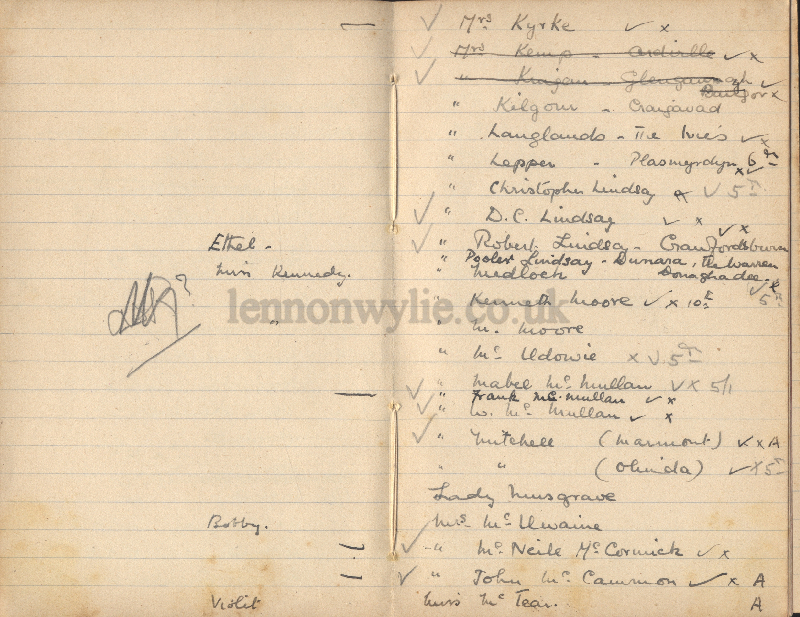 Ethel -
Miss Kennedy.
?
"
Bobby.
Violet
— ✓ Mrs Kyrke ✓ x
✓ Mrs Kemp - Ardville ✓ x
✓ " - ✓
x
" Kilgour - Craigavad
" Langlands - The Ivies ✓ x
" Lepper - Plasmerdyn 6th x ✓
" Christopher Lindsay A ✓ 5th
✓ " D.C. Lindsay ✓ x
✓ " Robert Lindsay - Crawfordsburn ✓ x
" Pooler Lindsay - Dunara, The Warren
" Medloch Donaghadee.
" Kenneth Moore ✓ x 10th ✓ x 5th
lennonwylie.co.uk
" M. Moore
" Mc Ildowie x ✓ 5th
✓ " Mabel Mc Mullan ✓ X 5/1
— ✓ " Frank Mc Mullan ✓ x
✓ " W. Mc Mullan ✓ x
✓ " Mitchell (Marmont) ✓ x A
" " (Olinda) ✓ x 5th
Lady Musgrave
Mrs Mc Ilwaine
✓ - " Mc Neile Mc Cormick ✓ x
— ✓ " John Mc Cammon ✓ x A
Miss Mc Tear. A